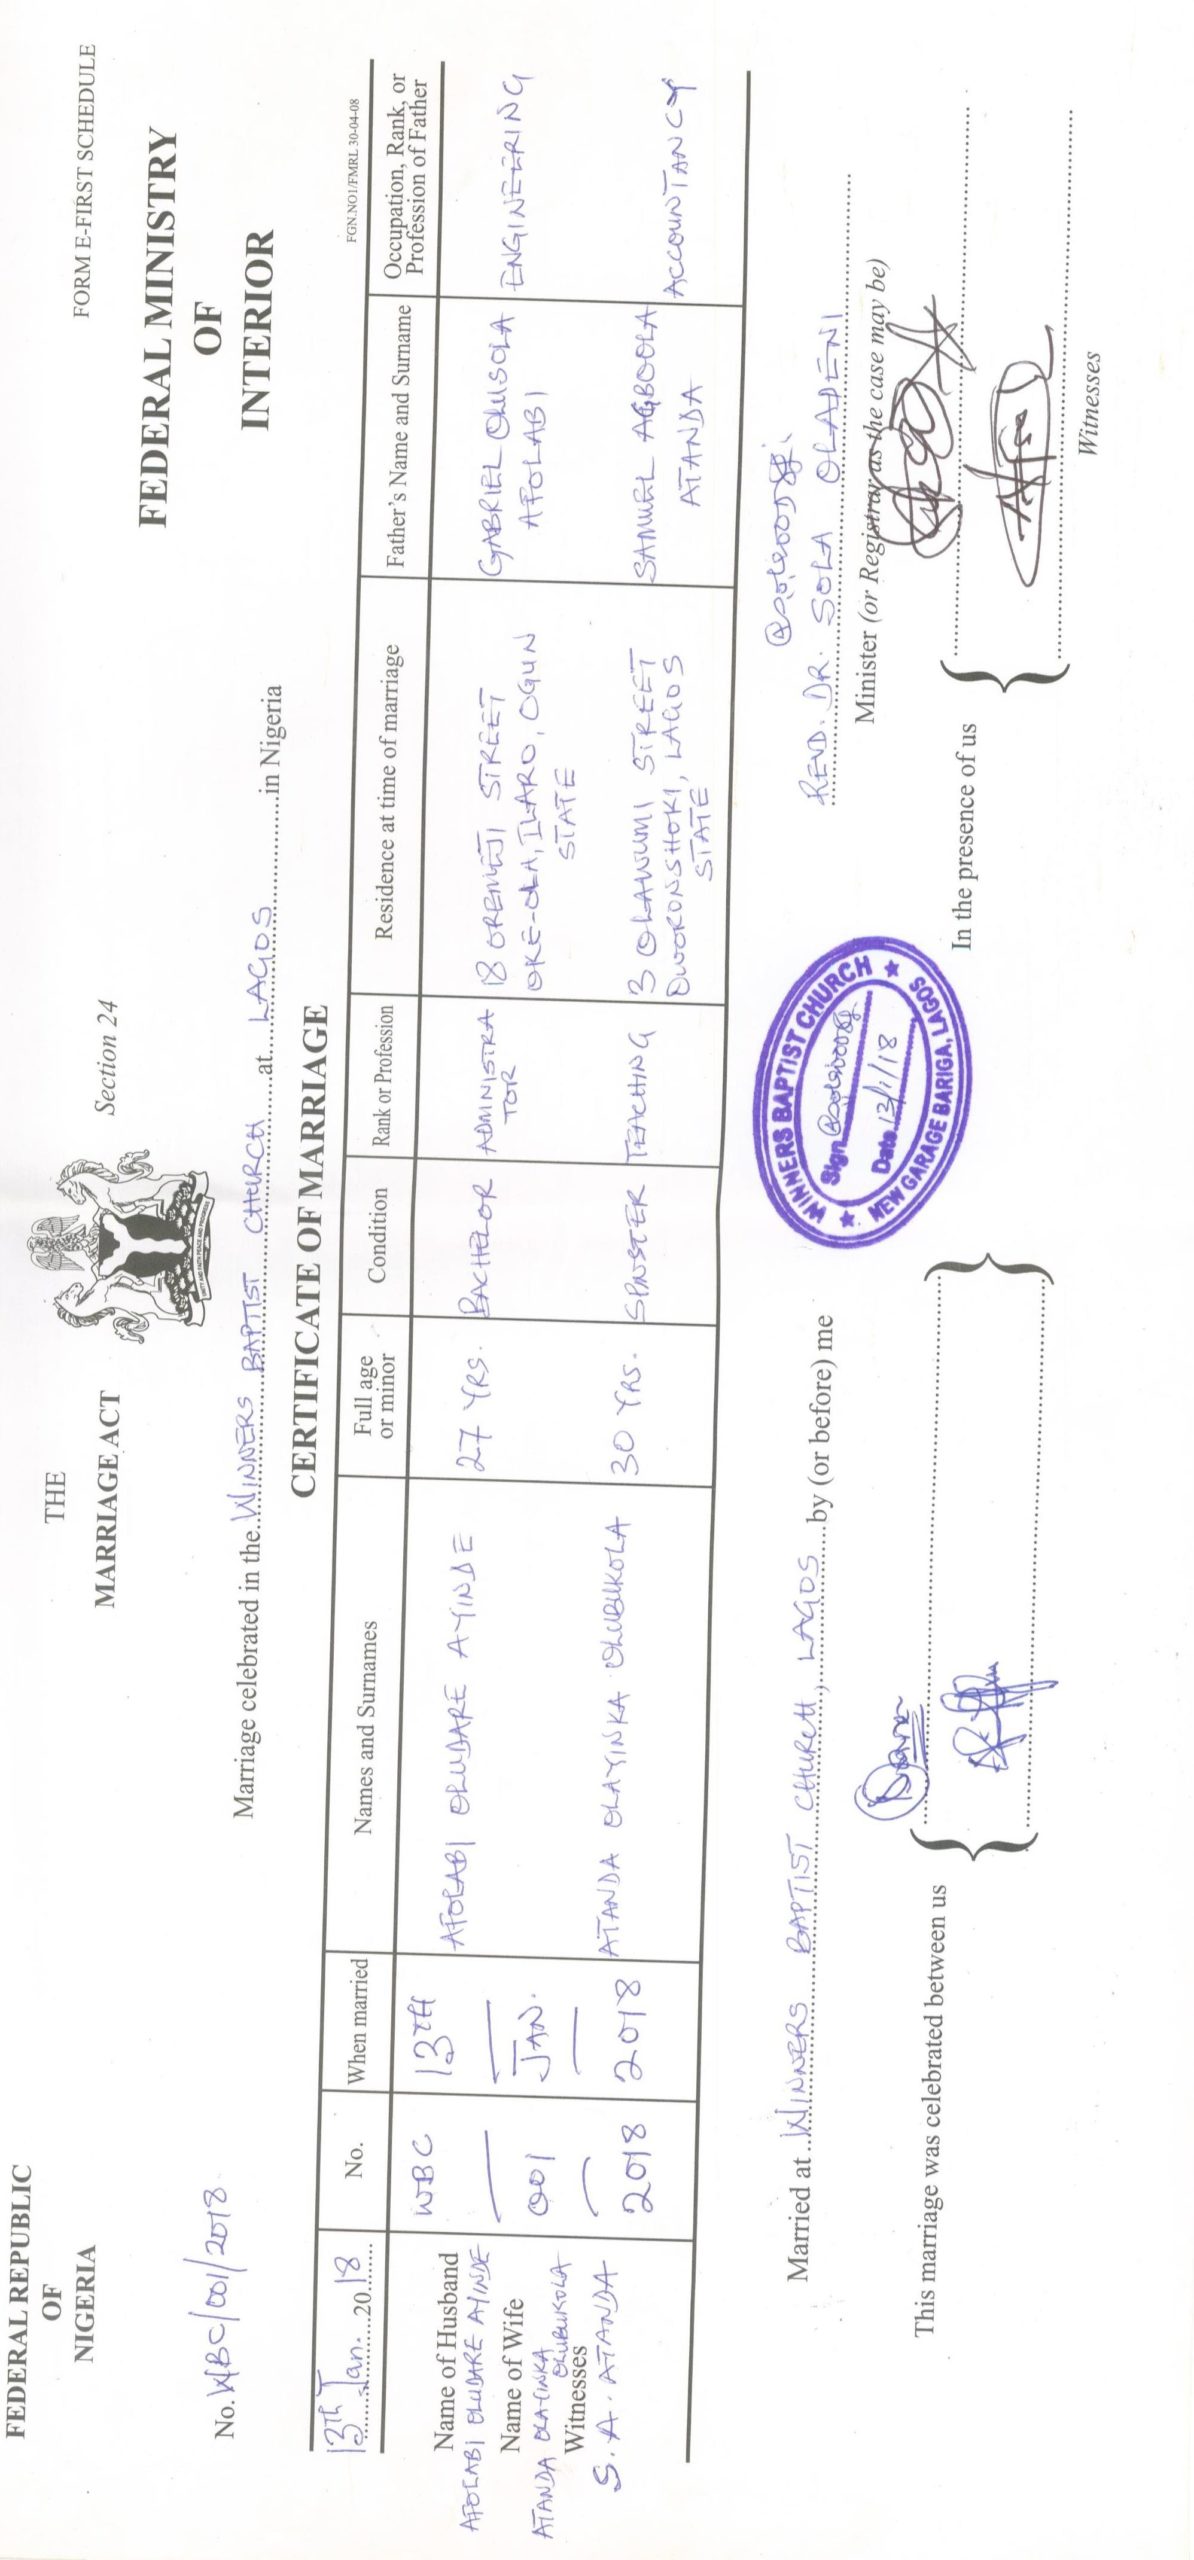 FEDERAL REPUBLIC
OF
NIGERIA
THE
MARRIAGE ACT
UNITY AND FAITH PEACE AND PROGRESS
Section 24
FORM E-FIRST SCHEDULE
FEDERAL MINISTRY
OF
INTERIOR
No. WBC/001/2018
Marriage celebrated in the WINNERS BAPTIST CHURCH at LAGOS in Nigeria
CERTIFICATE OF MARRIAGE
FGN.NO1/FMRL 30-04-08
13th Jan. 2018
No.
When married
Names and Surnames
Full age or minor
Condition
Rank or Profession
Residence at time of marriage
Father's Name and Surname
Occupation, Rank, or Profession of Father
Name of Husband
AFOLABI OLUDARE AYINDE
Name of Wife
ATANDA OLAYINKA OLUBUKOLA
Witnesses
S. A. ATANDA
WBC
001
2018
13TH
JAN.
2018
AFOLABI OLUDARE AYINDE
27 YRS.
BACHELOR
ADMINISTRA
TOR
18 OREMEJI STREET
OKE-OLA, ILARO, OGUN
STATE
GABRIEL OLUSOLA
AFOLABI
ENGINEERING
ATANDA OLAYINKA OLUBUKOLA
30 YRS.
SPINSTER
TEACHING
3 OLAWUMI STREET
OWORONSHOKI, LAGOS
STATE
SAMUEL AGBOOLA
ATANDA
ACCOUNTANCY
Married at WINNERS BAPTIST CHURCH, LAGOS by (or before) me
REVD. DR. SOLA OLADENI
Minister (or Registrar as the case may be)
WINNERS BAPTIST CHURCH
Sign
Date 13/1/18
NEW GARAGE BARIGA, LAGOS
This marriage was celebrated between us
In the presence of us
Witnesses